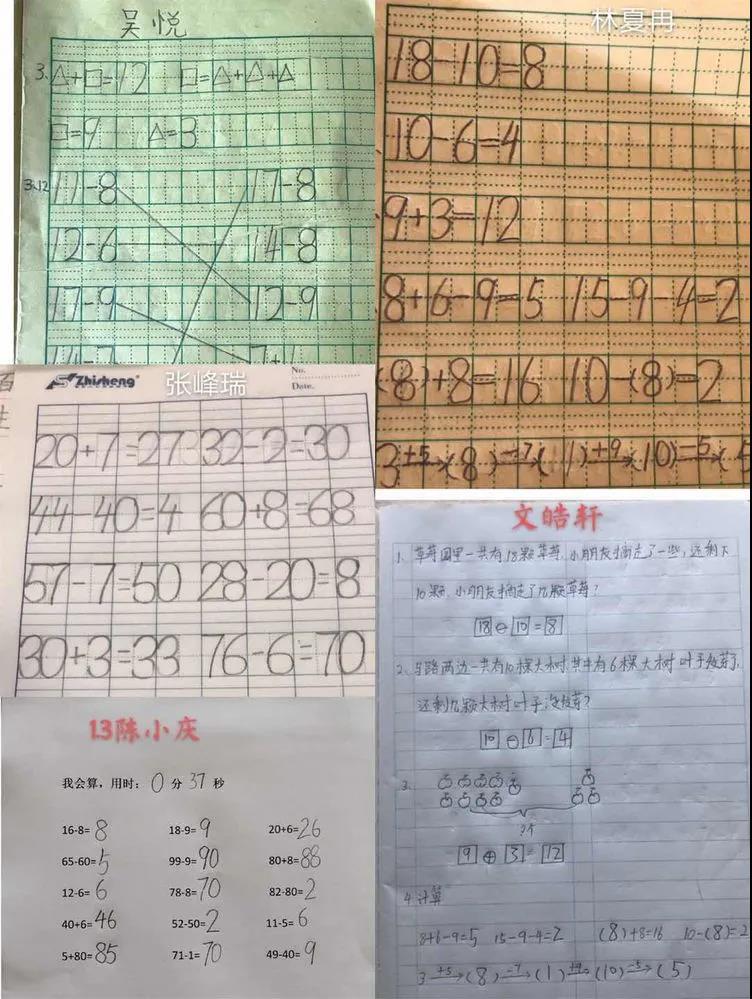 吴悦
3. △+□=12 □=△+△+△
□=9 △=3
3.12
11-8 17-8
12-6 14-8
17-9 12-9
林夏冉
18-10=8
10-6=4
9+3=12
8+6-9=5 15-9-4=2
(8)+8=16 10-(8)=2
3 +5→(8) -7→(1) +9→(10) -5→(
Zhisheng®
张峰瑞
No.
Date.
20+7=27 32-2=30
44-40=4 60+8=68
57-7=50 28-20=8
30+3=33 76-6=70
13陈小庆
我会算，用时：0分37秒
16-8=8 18-9=9 20+6=26
65-60=5 99-9=90 80+8=88
12-6=6 78-8=70 82-80=2
40+6=46 52-50=2 11-5=6
5+80=85 71-1=70 49-40=9
文皓轩
1. 草莓园里一共有18颗草莓,小朋友摘走了一些,还剩下
10颗,小朋友摘走了几颗草莓?
18⊖10=8
2. 马路两边一共有10棵大树,其中有6棵大树叶子发芽了,
还剩几颗大树叶子没发芽?
10⊖6=4
3.
?个
9⊕3=12
4. 计算
8+6-9=5 15-9-4=2 (8)+8=16 10-(8)=2
3 +5→(8) -7→(1) +9→(10) -5→(5)